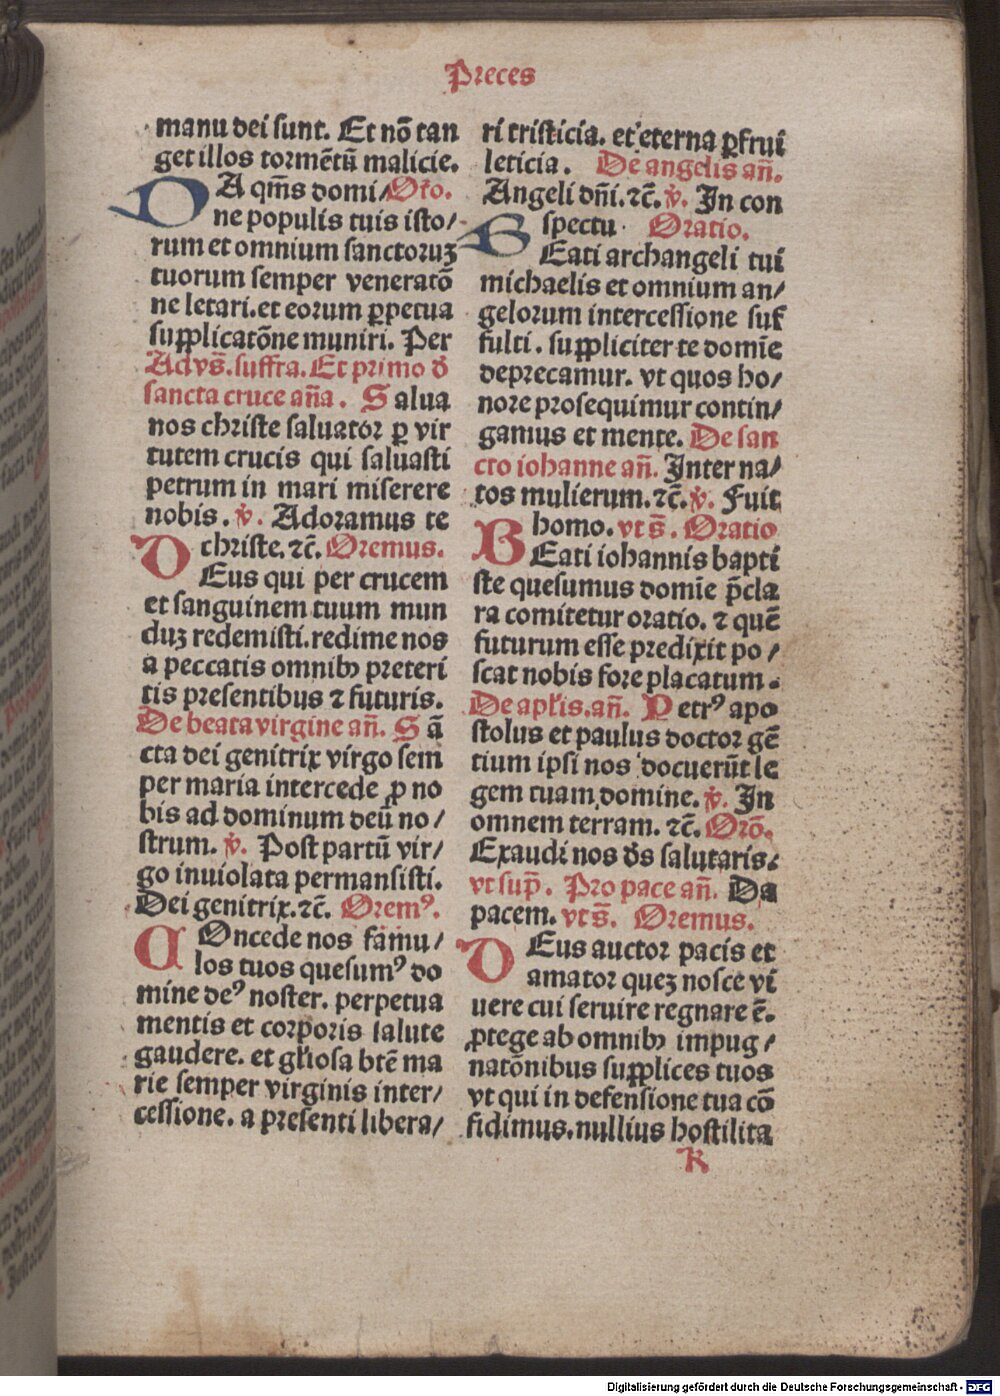 Preces
manu dei sunt. Et nō tan
get illos tormētū malicie.
DA qm̄s domi/ Oŕo.
ne populis tuis isto/
rum et omnium sanctoruꝫ
tuorum semper veneratō
ne letari. et eorum ꝑpetua
supplicatōne muniri. Per
Ad vs̄. suffra. Et primo ď
sancta cruce aña. Salua
nos christe saluator ꝑ vir
tutem crucis qui saluasti
petrum in mari miserere
nobis. ℣. Adoramus te
christe. ⁊c̄. Oremus.
DEus qui per crucem
et sanguinem tuum mun
duꝫ redemisti. redime nos
a peccatis omnibꝫ preteri
tis presentibus ⁊ futuris.
De beata virgine añ. Sā
cta dei genitrix virgo sem
per maria intercede ꝓ no
bis ad dominum deū no/
strum. ℣. Post partū vir/
go inuiolata permansisti.
Dei genitrix. ⁊c̄. Oremꝰ.
COncede nos famu/
los tuos quesumꝰ do
mine deꝰ noster. perpetua
mentis et corporis salute
gaudere. et gl̄iosa btē ma
rie semper virginis inter/
cessione. a presenti libera/
ri tristicia. et eterna ꝑfrui
leticia. De angelis añ.
Angeli dñi. ⁊c̄. ℣. In con
spectu. Oratio.
BEati archangeli tui
michaelis et omnium an/
gelorum intercessione suf
fulti. suppliciter te domīe
deprecamur. vt quos ho/
nore prosequimur contin/
gamus et mente. De san
cto iohanne añ. Inter na/
tos mulierum. ⁊c̄. ℣. Fuit
homo. vt s̄. Oratio
BEati iohannis bapti
ste quesumus domīe p̄cla
ra comitetur oratio. ⁊ quē
futurum esse predixit po/
scat nobis fore placatum.
De apl̄is. añ. Petrꝰ apo
stolus et paulus doctor gē
tium ipsi nos docuerūt le
gem tuam domine. ℣. In
omnem terram. ⁊c̄. Orō.
Exaudi nos ds̄ salutaris.
vt sup̄. Pro pace añ. Da
pacem. vt s̄. Oremus.
DEus auctor pacis et
amator queꝫ nosce vi
uere cui seruire regnare ē.
ꝓtege ab omnibꝫ impug/
natōnibus supplices tuos
vt qui in defensione tua cō
fidimus. nullius hostilita
K
Digitalisierung gefördert durch die Deutsche Forschungsgemeinschaft - DFG